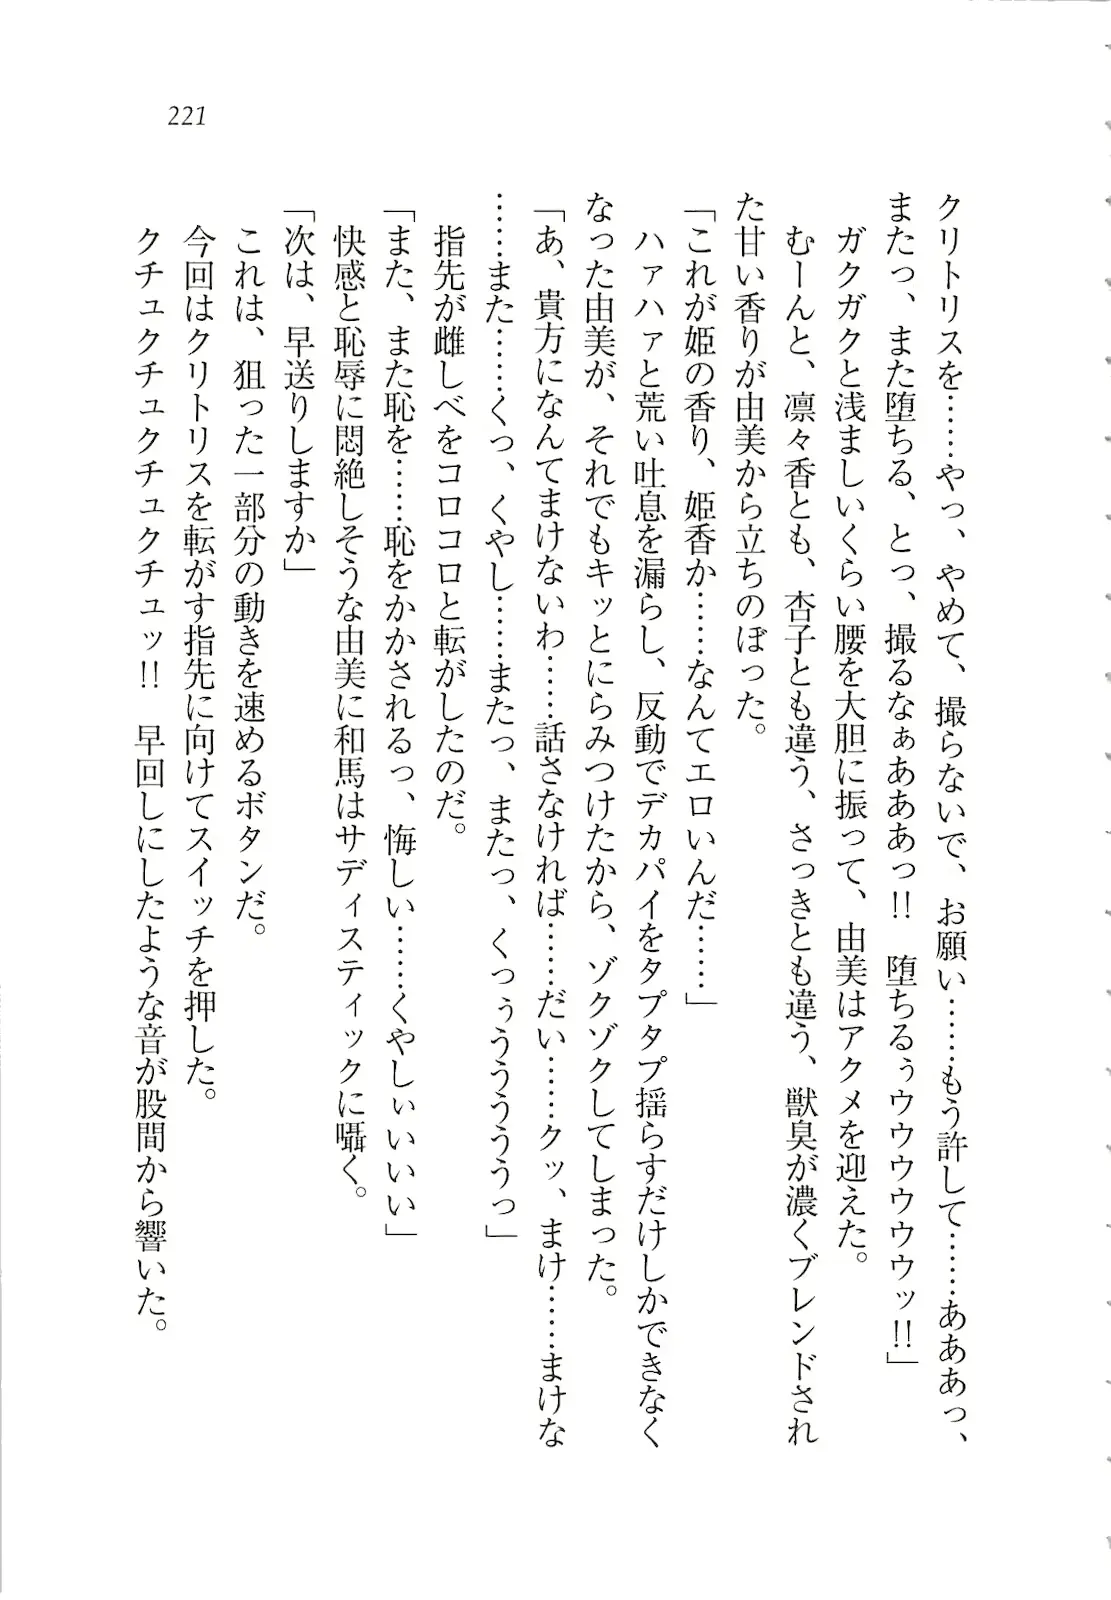 221
クリトリスを……やっ、やめて、撮らないで、お願い……もう許して……あああっ、
またっ、また堕ちる、とっ、撮るなぁあああっ!!　堕ちるぅウウウウウッ!!」
　ガクガクと浅ましいくらい腰を大胆に振って、由美はアクメを迎えた。
　むーんと、凛々香とも、杏子とも違う、さっきとも違う、獣臭が濃くブレンドされ
た甘い香りが由美から立ちのぼった。
「これが姫の香り、姫香か……なんてエロいんだ……」
　ハァハァと荒い吐息を漏らし、反動でデカパイをタプタプ揺らすだけしかできなく
なった由美が、それでもキッとにらみつけたから、ゾクゾクしてしまった。
「あ、貴方になんてまけないわ……話さなければ……だい……クッ、まけ……まけな
……また……くっ、くやし……またっ、またっ、くっぅうううううっ」
　指先が雌しべをコロコロと転がしたのだ。
「また、また恥を……恥をかかされるっ、悔しい……くやしぃいいい」
　快感と恥辱に悶絶しそうな由美に和馬はサディスティックに囁く。
「次は、早送りしますか」
　これは、狙った一部分の動きを速めるボタンだ。
　今回はクリトリスを転がす指先に向けてスイッチを押した。
　クチュクチュクチュクチュッ!!　早回しにしたような音が股間から響いた。